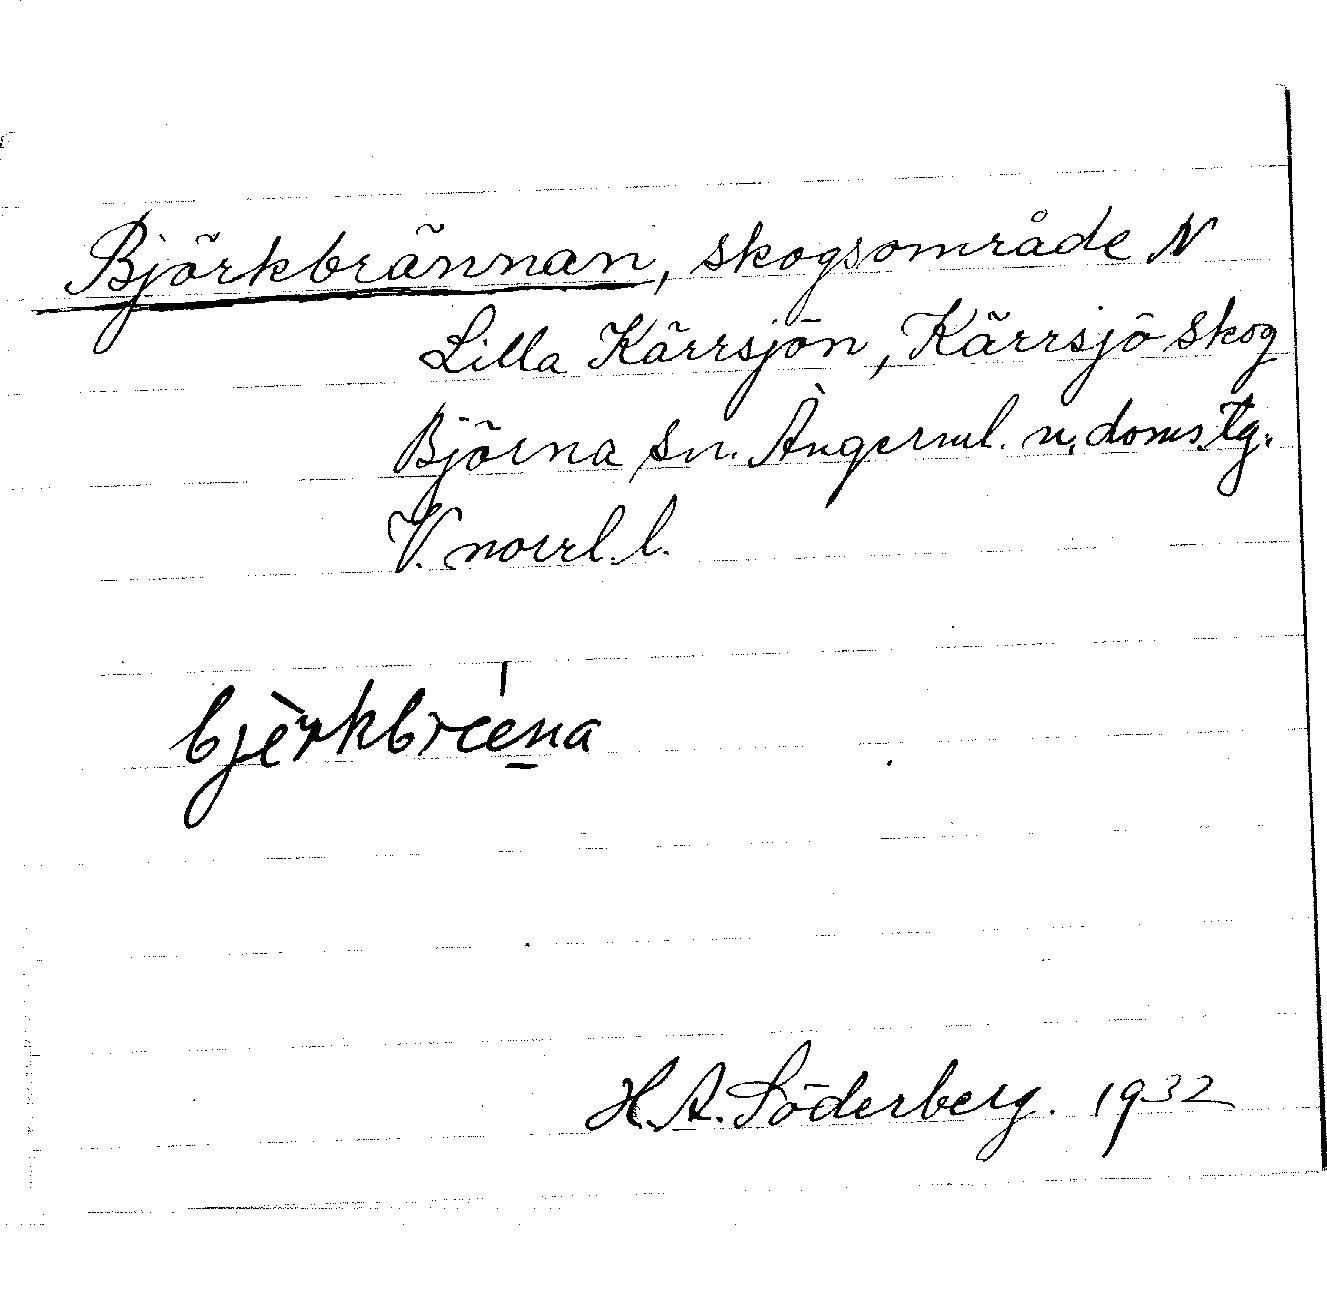 Björkbrännan, skogsområde N
Lilla Kärrsjön, Kärrsjö skog
Björna sn. Ångerml. n. doms. tg.
V. norrl. l.
bjèrkbrena
H. A. Söderberg. 1932